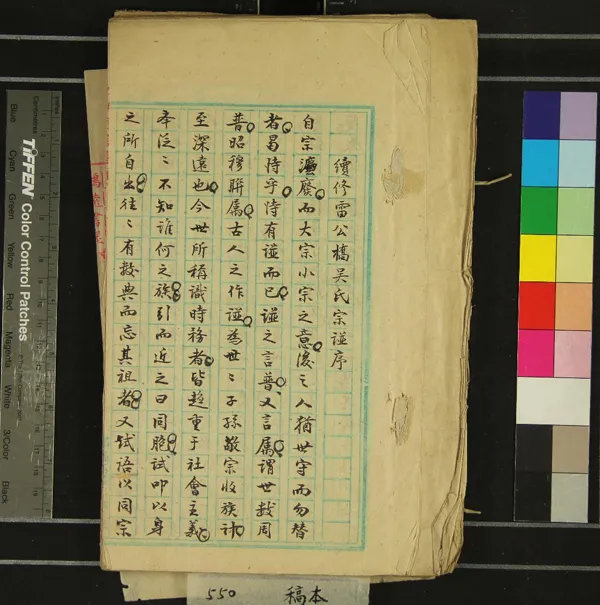 續修雷公橋吳氏宗諡序
自宗濂廢而大宗小宗之意後之人猶世守而勿替
者曷恃乎恃有諡而已諡之言普又言属謂世数周
普昭穆聨属古人之作諡為世〻子孫敬宗收族計
至深遠也今世所稱識時務者皆趋重于社會主義
本泛〻不知誰何之族引而近之曰同胞試叩以身
之所自出往〻有数典而忘其祖者又试语以同宗
550 稿本
TIFFEN Color Control Patches
Blue Cyan Green Yellow Red Magenta White 3/Color Black
Centimetres